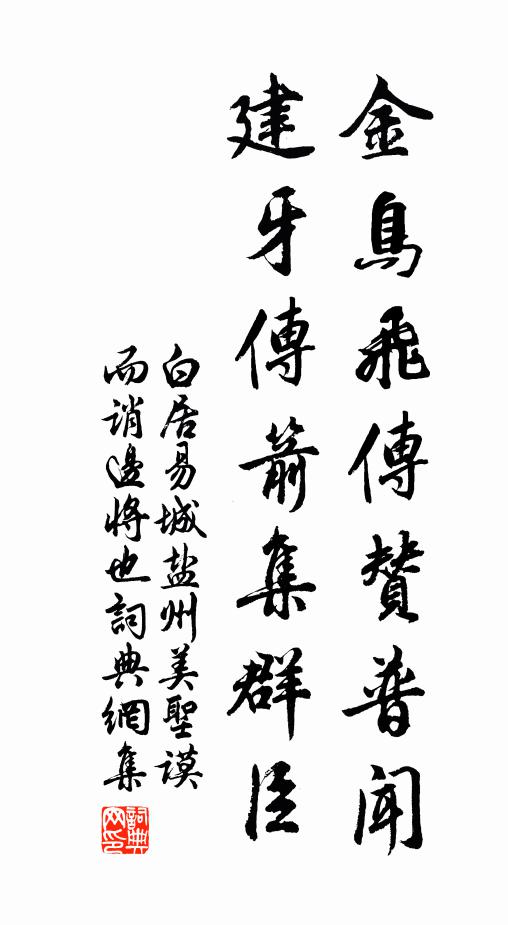 金鳥飛傳贊普聞
建牙傳箭集群臣
白居易城盐州美聖謨
而誚邊將也詞典網集
詞典
网印